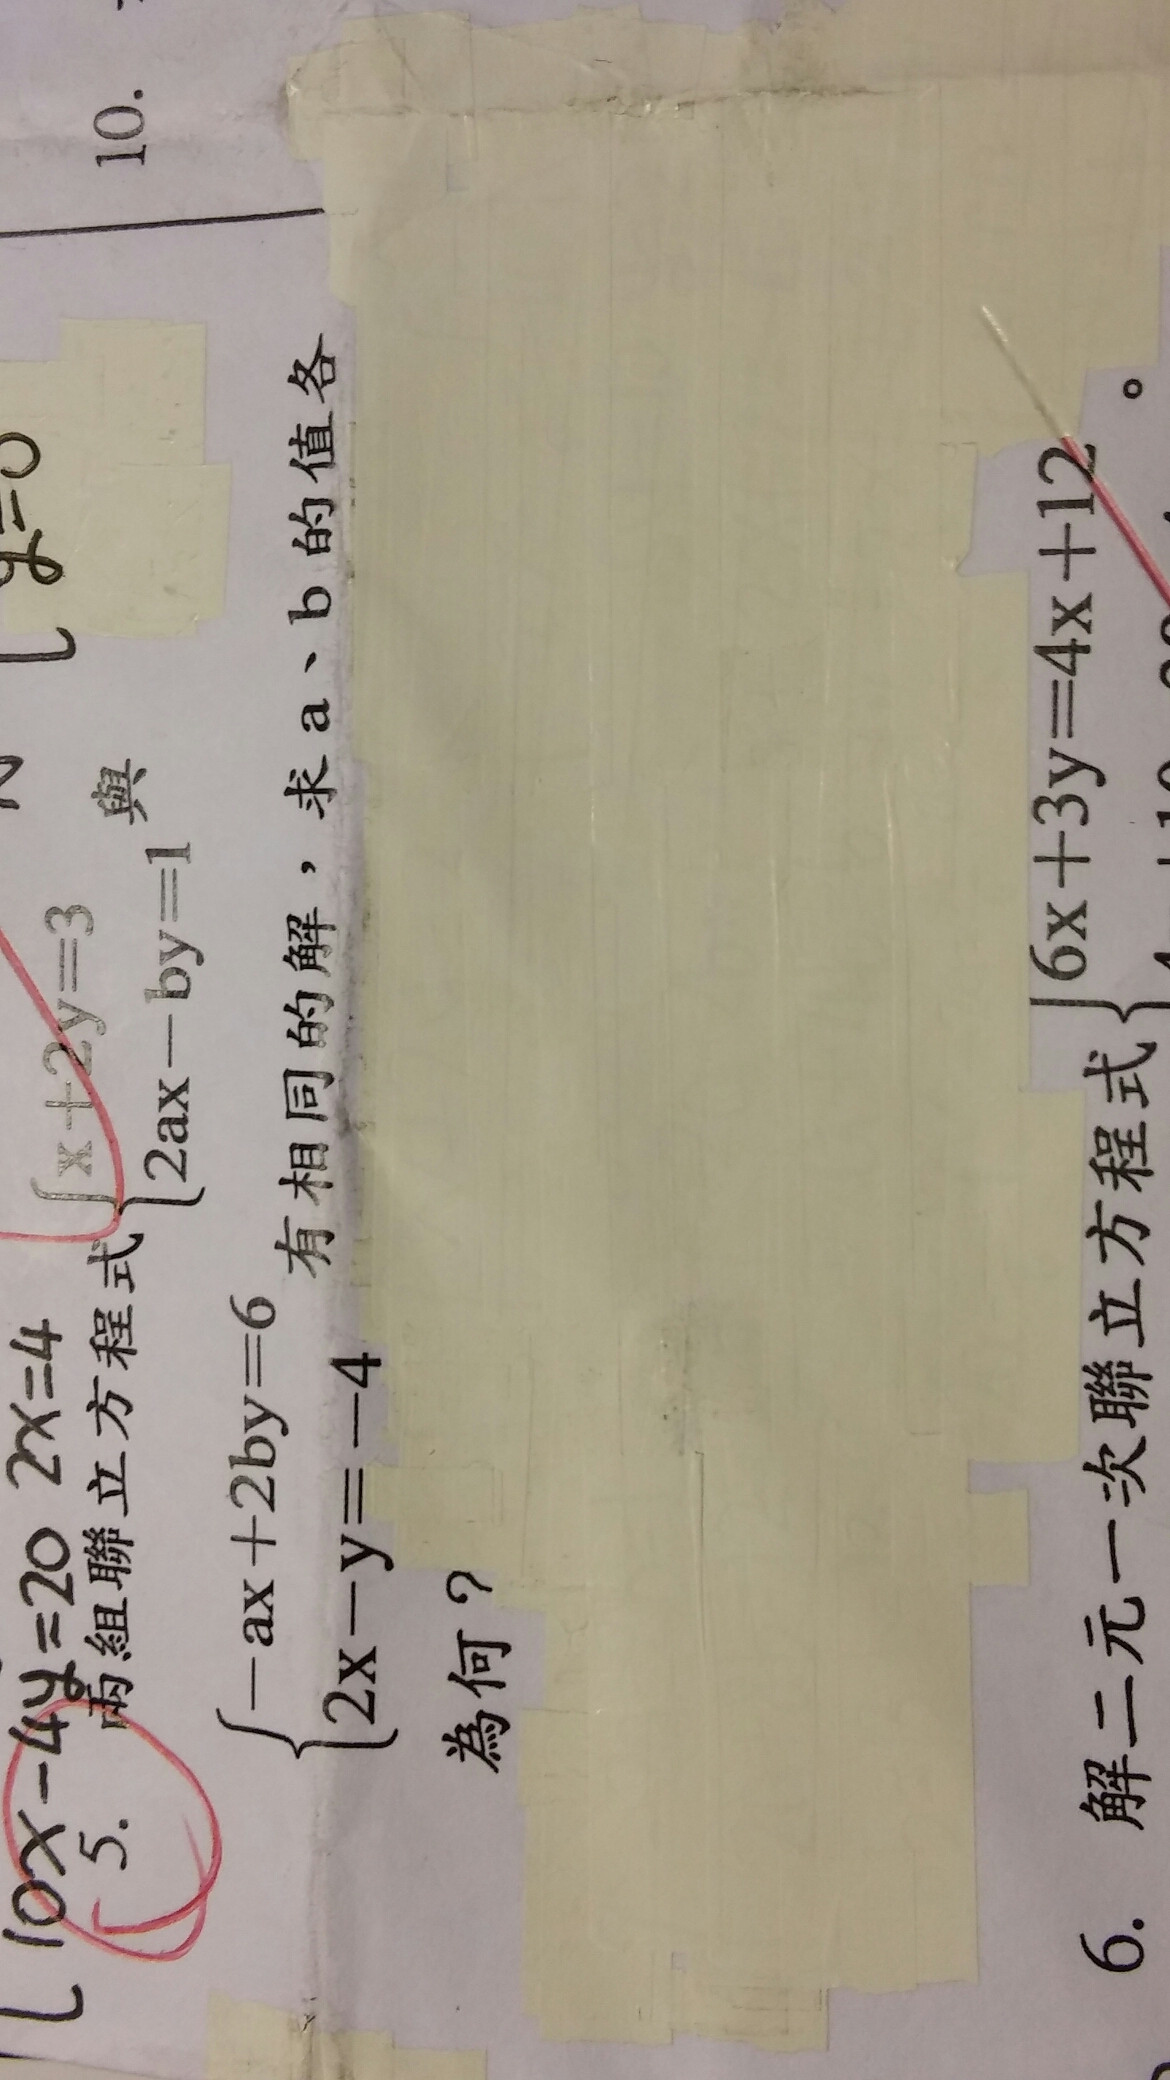 10x-4y=20 2x=4
y=0
5. 兩組聯立方程式 { x+2y=3
2ax-by=1 與
{ -ax+2by=6
2x-y=-4 有相同的解，求a、b的值各
為何？
10.
6. 解二元一次聯立方程式 { 6x+3y=4x+12 。